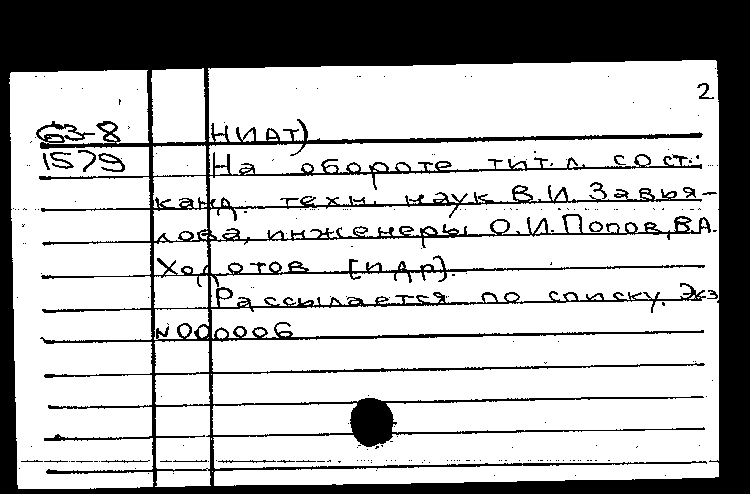 2
63-8 НИАТ)
1579 На обороте тит. л. сост.:
канд. техн. наук В.И. Завья-
лова, инженеры О.И. Попов, В.А.
[и др].
Рассылается по списку. Экз
N000006